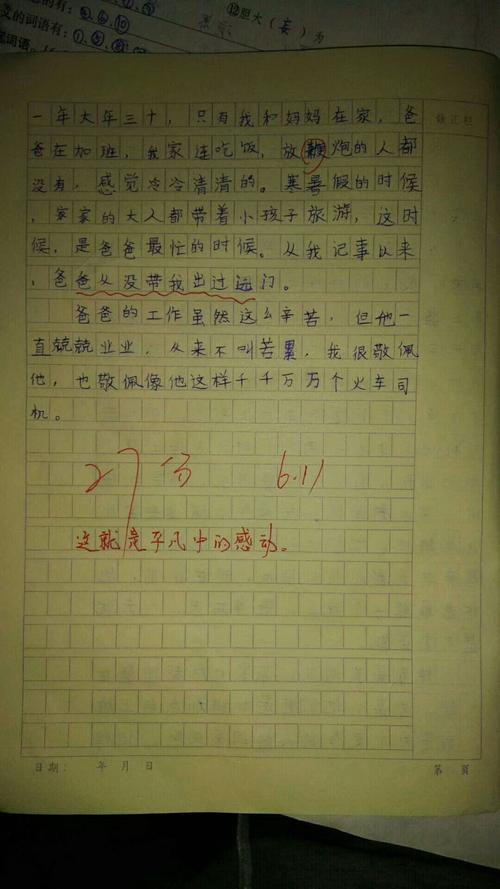 ⑫胆大（妄）为
义的词语有：①、⑤、⑧
一年大年三十，只有我和妈妈在家，爸
爸在加班，我家连吃饭，放鞭炮的人都
没有，感觉冷冷清清的。寒暑假的时候
，家家的大人都带着小孩子旅游，这时
候，是爸爸最忙的时候。从我记事以来
，爸爸从没带我出过远门。
爸爸的工作虽然这么辛苦，但他一
直兢兢业业，从来不叫苦累，我很敬佩
他，也敬佩像他这样千千万万个火车司
机。
27分 6.11
这就是平凡中的感动。
日期： 年 月 日 第 页